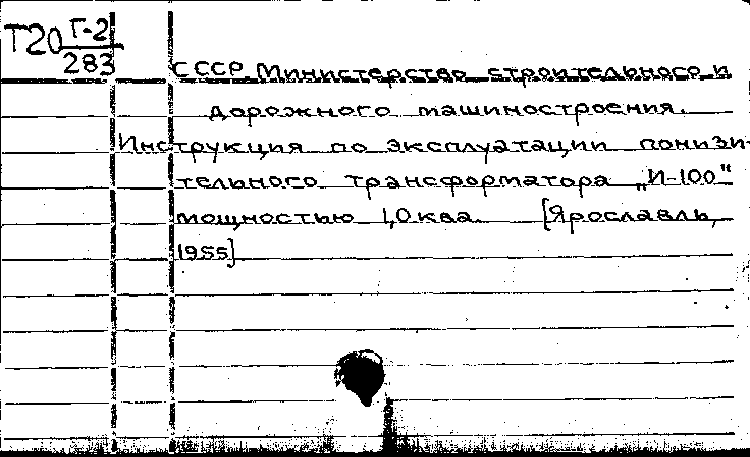 Т20 Г-2
283
СССР. Министерство строительного и
дорожного машиностроения.
Инструкция по эксплуатации понизи-
тельного трансформатора „И-100"
мощностью 1,0 ква. [Ярославль,
1955]